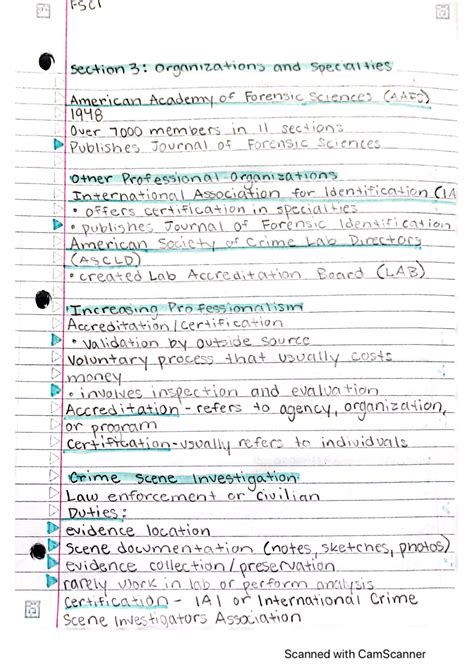 FSCI
Section 3: Organizations and Specialties
American Academy of Forensic Sciences (AAFS)
1948
Over 7000 members in 11 sections
Publishes Journal of Forensic Sciences
Other Professional Organizations
International Association for Identification (IA
• offers certification in specialties
• publishes Journal of Forensic Identification
American Society of Crime Lab Directors
(ASCLD)
• created Lab Accreditation Board (LAB)
Increasing Professionalism
Accreditation/certification
• validation by outside source
voluntary process that usually costs
money
• involves inspection and evaluation
Accreditation - refers to agency, organization,
or program
Certification - usually refers to individuals
Crime Scene Investigation
Law enforcement or civilian
Duties:
evidence location
Scene documentation (notes, sketches, photos)
evidence collection/preservation
rarely work in lab or perform analysis
certification - IAI or International Crime
Scene Investigators Association
Scanned with CamScanner